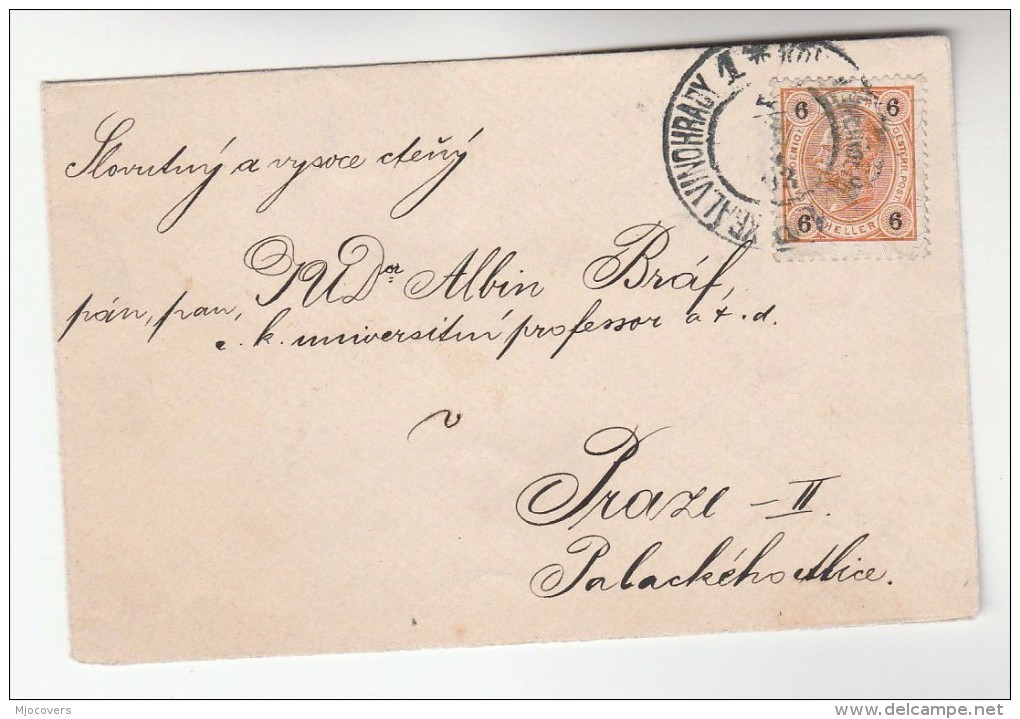 Slovutný a vysoce ctěný
pán, pan, JUDor Albin Bráf,
c. k. universitní professor a t. d.
v
Praze - II.
Palackého ulice.
KRÁL. VINOHRADY 1 *
6 6
OESTERR. POST.
6 HELLER 6
Mjocovers
delcampe.net